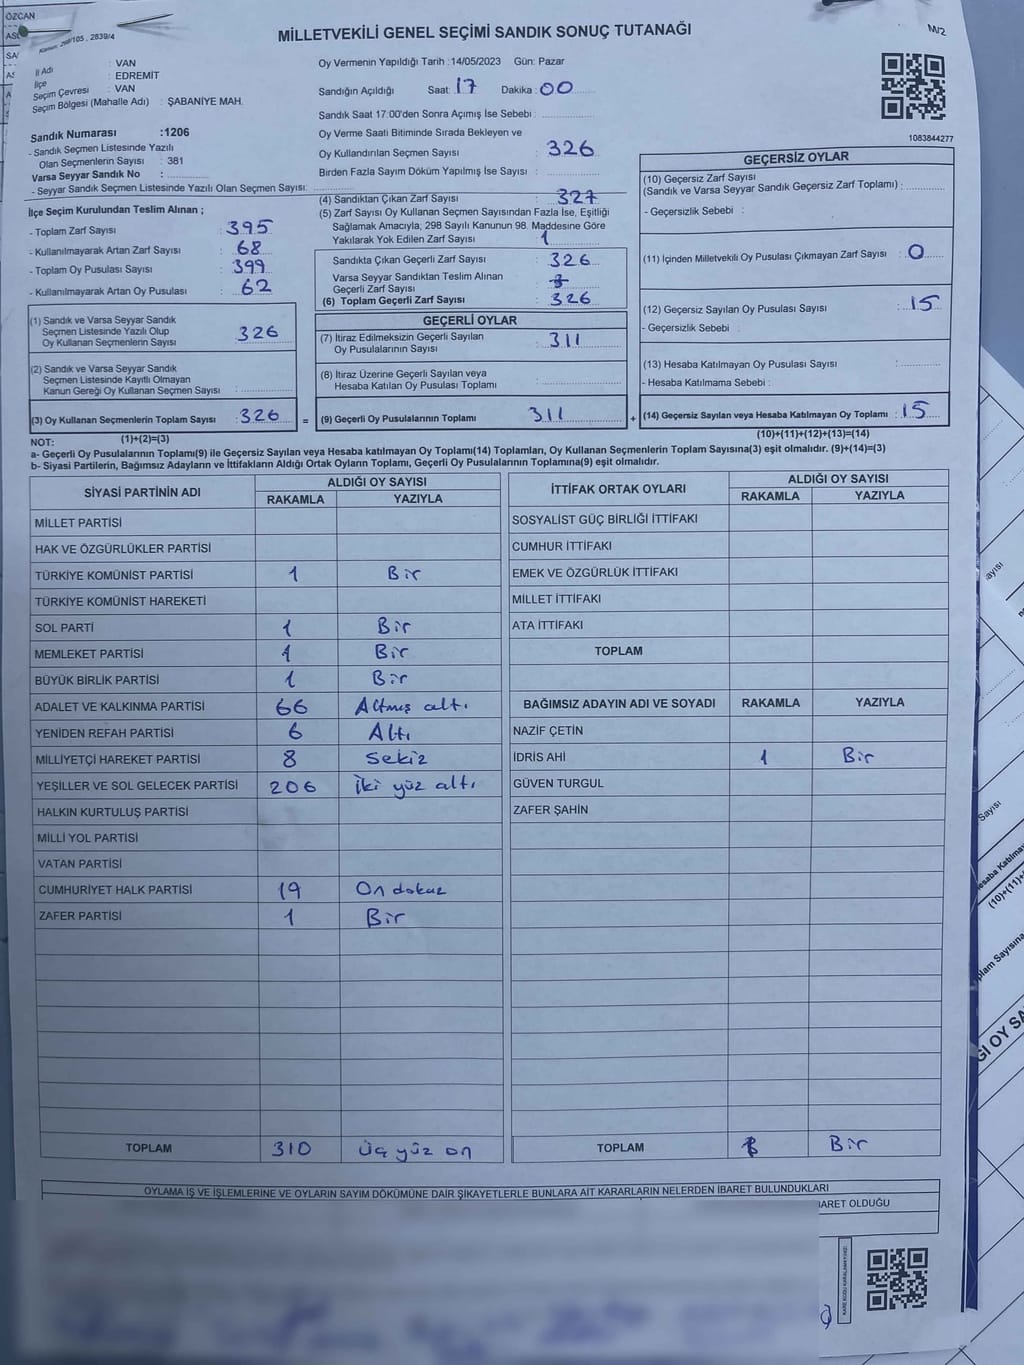 ÖZCAN
MİLLETVEKİLİ GENEL SEÇİMİ SANDIK SONUÇ TUTANAĞI
M/2
İl Adı : VAN
İlçe : EDREMİT
Seçim Çevresi : VAN
Seçim Bölgesi (Mahalle Adı) : ŞABANİYE MAH.
Sandık Numarası :1206
- Sandık Seçmen Listesinde Yazılı
Olan Seçmenlerin Sayısı : 381
Varsa Seyyar Sandık No :
- Seyyar Sandık Seçmen Listesinde Yazılı Olan Seçmen Sayısı:
Oy Vermenin Yapıldığı Tarih :14/05/2023 Gün: Pazar
Sandığın Açıldığı Saat: 17 Dakika : 00
Sandık Saat 17:00'den Sonra Açımış İse Sebebi :
Oy Verme Saati Bitiminde Sırada Bekleyen ve
Oy Kullandırılan Seçmen Sayısı : 326
Birden Fazla Sayım Döküm Yapılmış İse Sayısı :
1083844277
İlçe Seçim Kurulundan Teslim Alınan ;
- Toplam Zarf Sayısı : 395
- Kullanılmayarak Artan Zarf Sayısı : 68
- Toplam Oy Pusulası Sayısı : 399
- Kullanılmayarak Artan Oy Pusulası : 62
(1) Sandık ve Varsa Seyyar Sandık
Seçmen Listesinde Yazılı Olup
Oy Kullanan Seçmenlerin Sayısı : 326
(2) Sandık ve Varsa Seyyar Sandık
Seçmen Listesinde Kayıtlı Olmayan
Kanun Gereği Oy Kullanan Seçmen Sayısı :
(3) Oy Kullanan Seçmenlerin Toplam Sayısı : 326 =
(1)+(2)=(3)
(4) Sandıktan Çıkan Zarf Sayısı : 327
(5) Zarf Sayısı Oy Kullanan Seçmen Sayısından Fazla İse, Eşitliği
Sağlamak Amacıyla, 298 Sayılı Kanunun 98. Maddesine Göre
Yakılarak Yok Edilen Zarf Sayısı : 1
Sandıkta Çıkan Geçerli Zarf Sayısı : 326
Varsa Seyyar Sandıktan Teslim Alınan
Geçerli Zarf Sayısı :
(6) Toplam Geçerli Zarf Sayısı : 326
GEÇERLİ OYLAR
(7) İtiraz Edilmeksizin Geçerli Sayılan
Oy Pusulalarının Sayısı : 311
(8) İtiraz Üzerine Geçerli Sayılan veya
Hesaba Katılan Oy Pusulası Toplamı :
(9) Geçerli Oy Pusulalarının Toplamı : 311 +
GEÇERSİZ OYLAR
(10) Geçersiz Zarf Sayısı
(Sandık ve Varsa Seyyar Sandık Geçersiz Zarf Toplamı) :
- Geçersizlik Sebebi :
(11) İçinden Milletvekili Oy Pusulası Çıkmayan Zarf Sayısı : 0
(12) Geçersiz Sayılan Oy Pusulası Sayısı : 15
- Geçersizlik Sebebi :
(13) Hesaba Katılmayan Oy Pusulası Sayısı :
- Hesaba Katılmama Sebebi :
(14) Geçersiz Sayılan veya Hesaba Katılmayan Oy Toplamı : 15
(10)+(11)+(12)+(13)=(14)
NOT:
a- Geçerli Oy Pusulalarının Toplamı(9) ile Geçersiz Sayılan veya Hesaba katılmayan Oy Toplamı(14) Toplamları, Oy Kullanan Seçmenlerin Toplam Sayısına(3) eşit olmalıdır. (9)+(14)=(3)
b- Siyasi Partilerin, Bağımsız Adayların ve İttifakların Aldığı Ortak Oyların Toplamı, Geçerli Oy Pusulalarının Toplamına(9) eşit olmalıdır.
SİYASİ PARTİNİN ADI ALDIĞI OY SAYISI
RAKAMLA YAZIYLA
MİLLET PARTİSİ
HAK VE ÖZGÜRLÜKLER PARTİSİ
TÜRKİYE KOMÜNİST PARTİSİ 1 Bir
TÜRKİYE KOMÜNİST HAREKETİ
SOL PARTİ 1 Bir
MEMLEKET PARTİSİ 1 Bir
BÜYÜK BİRLİK PARTİSİ 1 Bir
ADALET VE KALKINMA PARTİSİ 66 Altmış altı
YENİDEN REFAH PARTİSİ 6 Altı
MİLLİYETÇİ HAREKET PARTİSİ 8 Sekiz
YEŞİLLER VE SOL GELECEK PARTİSİ 206 İki yüz altı
HALKIN KURTULUŞ PARTİSİ
MİLLİ YOL PARTİSİ
VATAN PARTİSİ
CUMHURİYET HALK PARTİSİ 19 On dokuz
ZAFER PARTİSİ 1 Bir
TOPLAM 310 Üç yüz on
İTTİFAK ORTAK OYLARI ALDIĞI OY SAYISI
RAKAMLA YAZIYLA
SOSYALİST GÜÇ BİRLİĞİ İTTİFAKI
CUMHUR İTTİFAKI
EMEK VE ÖZGÜRLÜK İTTİFAKI
MİLLET İTTİFAKI
ATA İTTİFAKI
TOPLAM
BAĞIMSIZ ADAYIN ADI VE SOYADI RAKAMLA YAZIYLA
NAZİF ÇETİN
İDRİS AHİ 1 Bir
GÜVEN TURGUL
ZAFER ŞAHİN
TOPLAM 1 Bir
OYLAMA İŞ VE İŞLEMLERİNE VE OYLARIN SAYIM DÖKÜMÜNE DAİR ŞİKAYETLERLE BUNLARA AİT KARARLARIN NELERDEN İBARET BULUNDUKLARI
BARET OLDUĞU